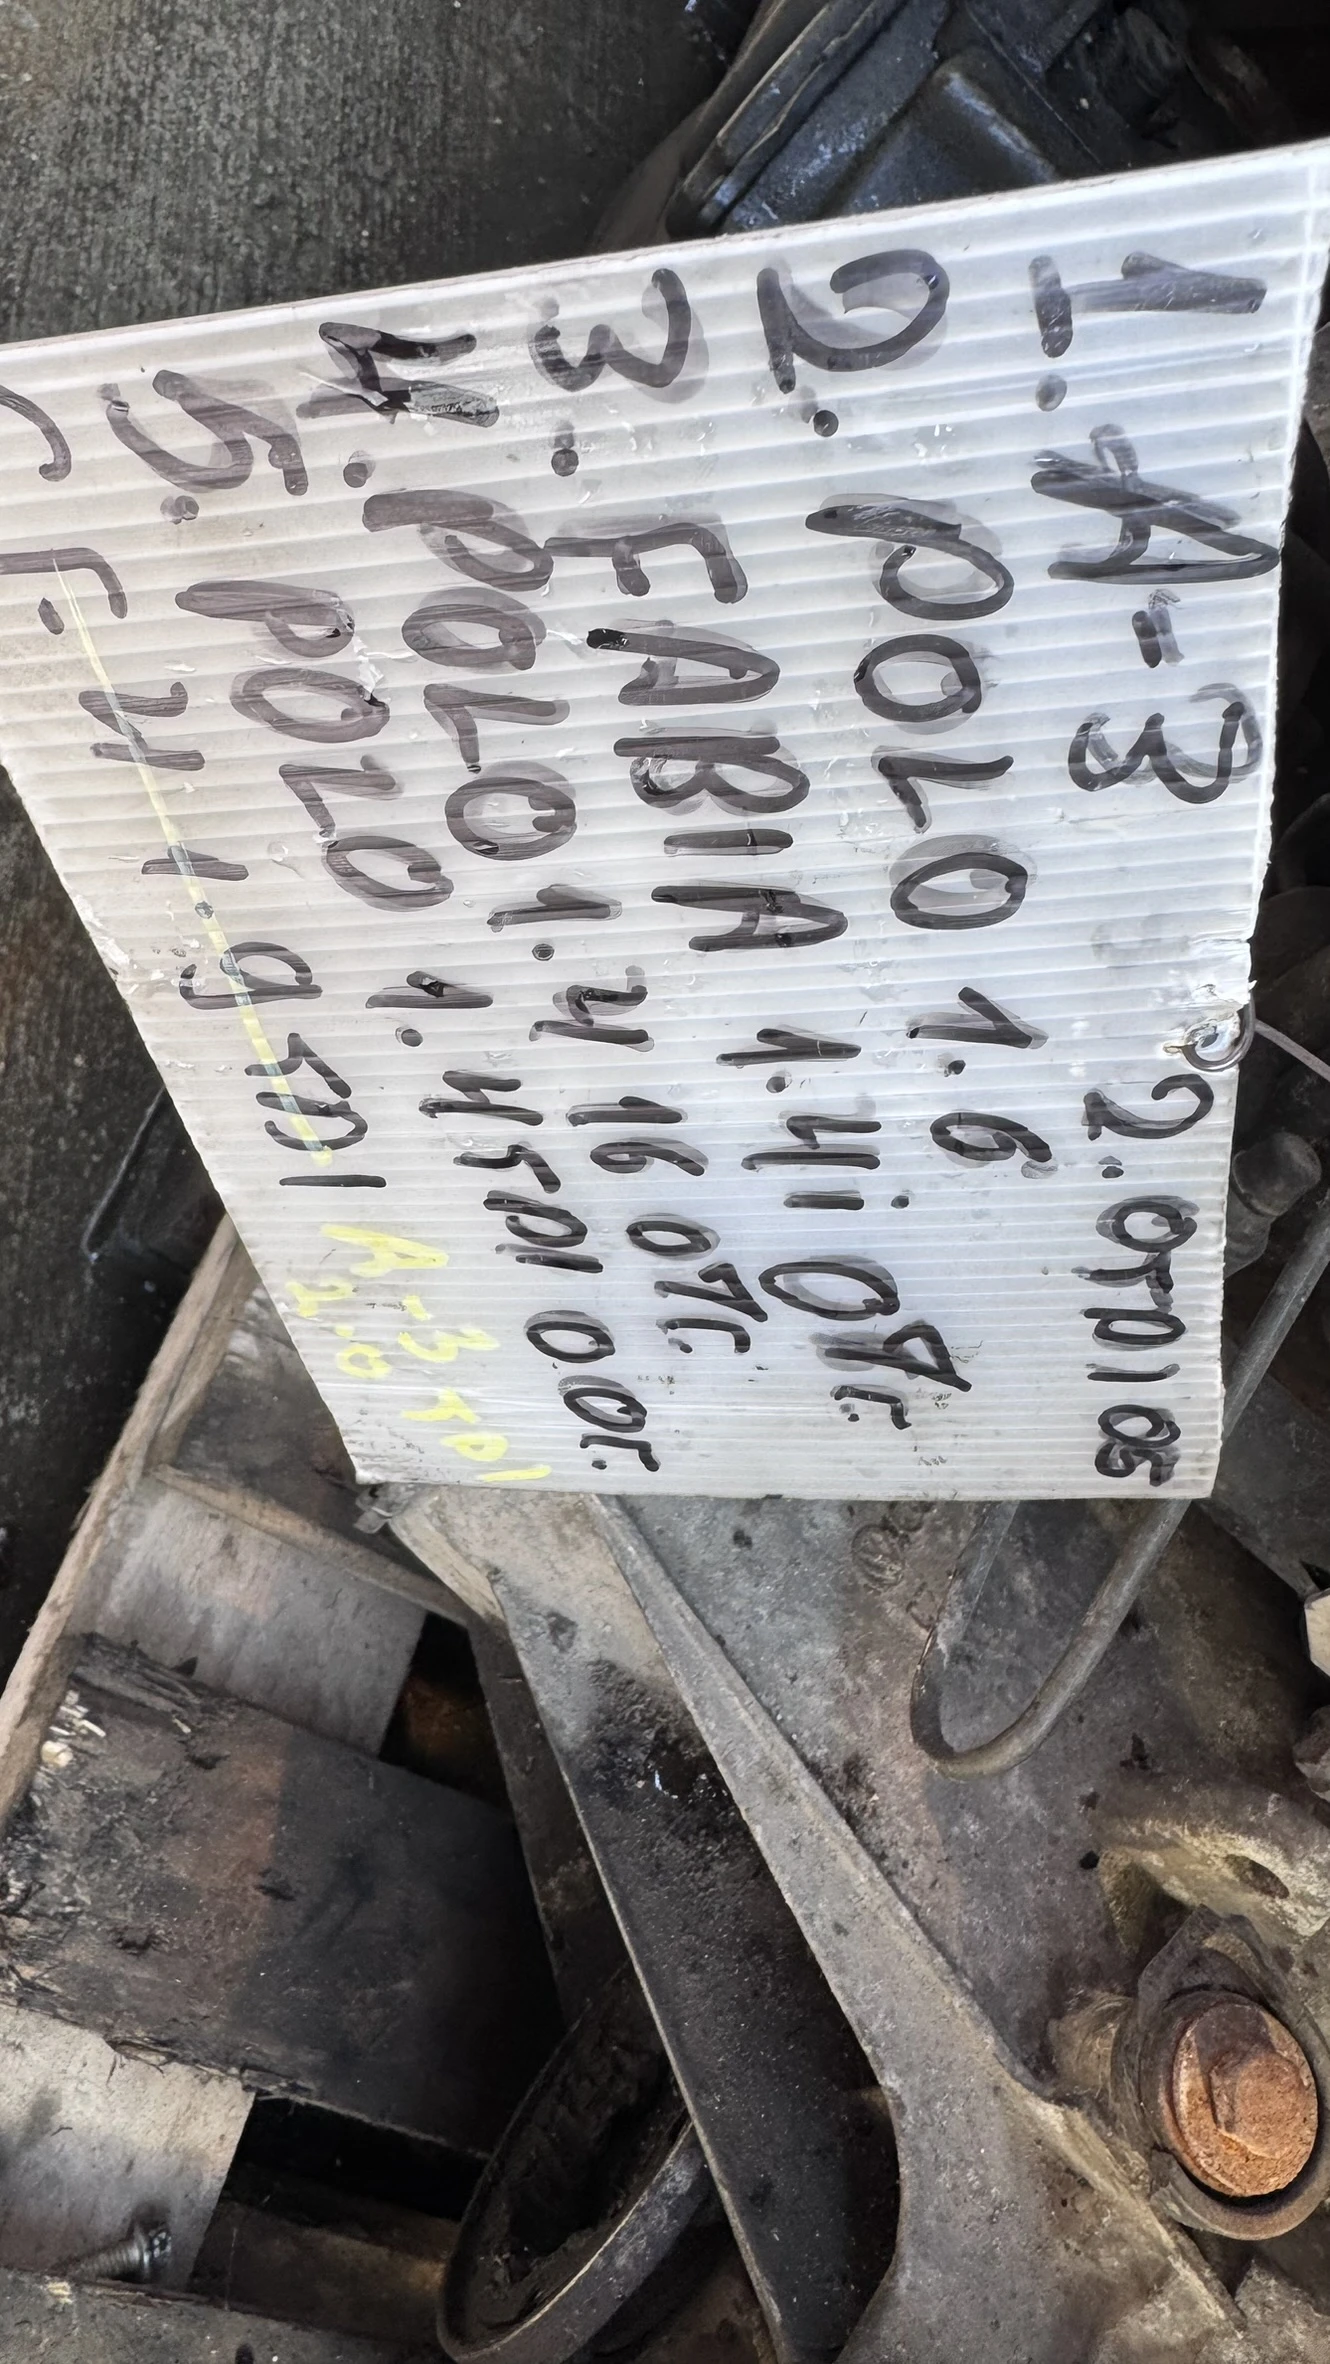 1. A-3 2.0TDI 05
2. POLO 1.6
3. FABIA 1.4i 07г.
4. POLO 1.4 16 07г.
5. POLO 1.4 SDI 00г.
Г. 4 1.9 TDI
A-3 TDI
2.0